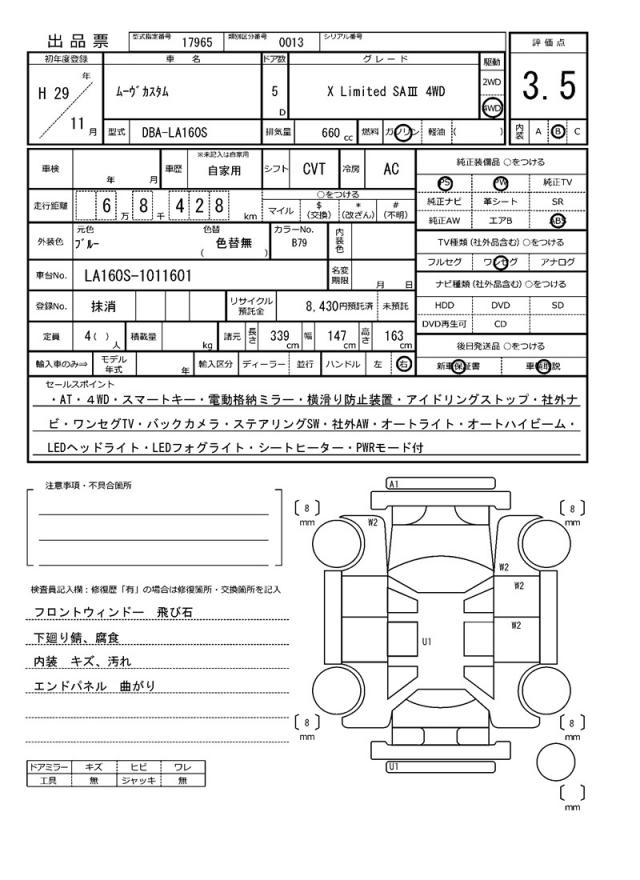 出品票 型式指定番号 17965 類別区分番号 0013 シリアル番号
評価点
3.5
初年度登録 車名 ドア数 グレード 駆動
H 29 年 11 月
ﾑｰｳﾞｶｽﾀﾑ 5 D X Limited SAⅢ 4WD
2WD
4WD
型式 DBA-LA160S 排気量 660 cc 燃料 ガソリン 軽油 ( )
内装 A B C
車検 年 月 車歴 ※未記入は自家用 自家用 シフト CVT 冷房 AC
走行距離 6 万 8 千 4 2 8 km
○をつける
マイル $(交換) *(改ざん) #(不明)
外装色 元色 ﾌﾞﾙｰ 色替 色替無 ( ) カラーNo. B79 内装色
車台No. LA160S-1011601 名変期限 月 日
登録No. 抹消 リサイクル預託金 8,430円預託済 未預託
定員 4( ) 人 積載量 kg 諸元 長さ 339 cm 幅 147 cm 高さ 163 cm
輸入車のみ⇒ モデル年式 年 輸入区分 ディーラー 並行 ハンドル 左 右
純正装備品 ○をつける
PS PW 純正TV
純正ナビ 革シート SR
純正AW エアB ABS
TV種類(社外品含む) ○をつける
フルセグ ワンセグ アナログ
ナビ種類(社外品含む) ○をつける
HDD DVD SD
DVD再生可 CD
後日発送品 ○をつける
新車保証書 車輌取説
セールスポイント
・AT・４WD・スマートキー・電動格納ミラー・横滑り防止装置・アイドリングストップ・社外ナ
ビ・ワンセグTV・バックカメラ・ステアリングSW・社外AW・オートライト・オートハイビーム・
LEDヘッドライト・LEDフォグライト・シートヒーター・PWRモード付
注意事項・不具合箇所
検査員記入欄：修復歴「有」の場合は修復箇所・交換箇所を記入
フロントウィンドー 飛び石
下廻り錆、腐食
内装 キズ、汚れ
エンドパネル 曲がり
ドアミラー キズ ヒビ ワレ
工具 無 ジャッキ 無
A1
8 mm
8 mm
W2
W2
W2
W2
U1
8 mm
8 mm
U1
mm